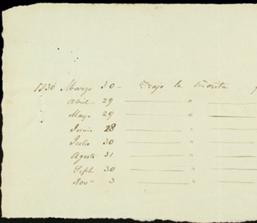 1730 Marzo 30 - Trajo la
Abril - 29 "
Mayo - 29 "
Junio 28 "
Julio 30 "
Agosto 31 "
Sept. 30 "
Nov - 3 "